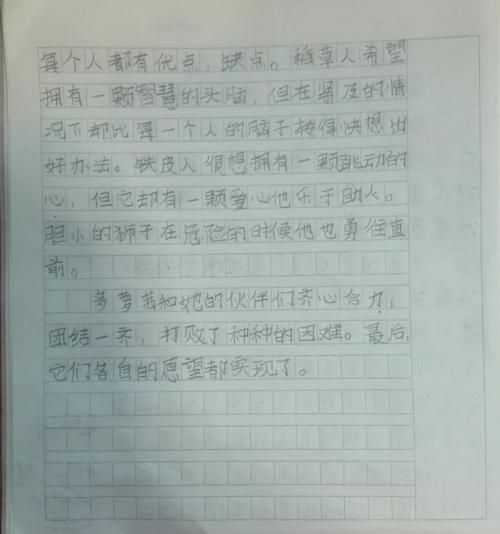 每个人都有优点，缺点。稻草人希望
拥有一颗智慧的头脑，但在紧及的情
况下却比每一个人的脑子转得快想出
好办法。铁皮人很想拥有一颗跳动的
心，但它却有一颗爱心他乐于助人。
胆小的狮子在危险的时候他也勇往直
前。
多萝茜和她的伙伴们齐心合力，
团结一齐，打败了种种的困难。最后，
它们各自的愿望都实现了。